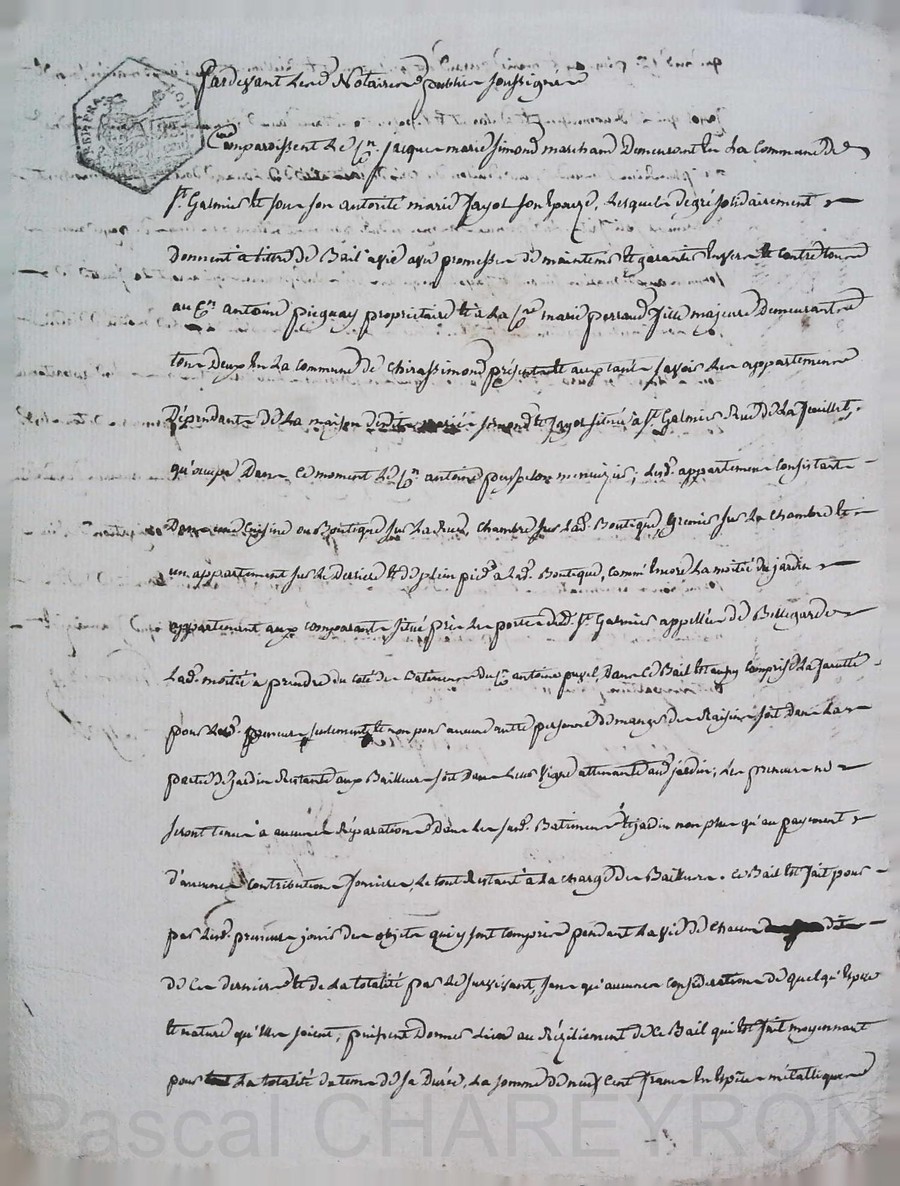 Pardevant Les Notaires publics soussignés
Comparoissent Le Cn. Jacque marie Simond marchand Demeurant En La Commune de
St. Galmier Et sous son autorité marie Jayol son Epouze, Lesquels de gré solidairement
donnent à titre de Bail à vie avec promesse de maintenir Et garantir Envers Et contre tous
au Cn. antoine picquay propriétaire Et à La Cne. marie perraud fille majeure Demeurants
tous Deux En La commune de Chirassimond présents Et acceptants savoir Les appartements
Dépendants de La maison desdits simond Et Jayol située à St. Galmier Rue de La
qu'occupe Dans ce moment Le Cn. antoine menuizier; Lesd. appartements Consistants
Dans une Cuisine ou Boutique sur La Rue, Chambre sur Lad. Boutique, Grenier sur La chambre Et
un appartement sur Le Derrière Et de plein pied à Lad. Boutique, comm'Encore La moitié du jardin
appartenant aux comparants situé près La porte dud. St. Galmier appellée de Bellegarde
Lad. moitié à prendre du coté des Batiments du Cn. antoine Dans ce Bail Est aussy comprise La faculté
pour Lesd. preneurs seulement Et non pour aucune autre personne de manger des Raisins soit Dans La
partie de jardin Restante aux Bailleurs soit Dans Leur Vigne attenante aud. jardin; Les preneurs ne
seront tenus à aucunes Réparations Dans Les susd. Batiments Et jardin non plus qu'au payement
d'aucunes Contributions foncières Le tout Restant à La charge des Bailleurs. ce Bail Est fait pour
par Lesd. preneurs jouir des objets qui y sont compris pendant La vie de chacun
de Ces derniers Et de La totalité par Le survivant, sans qu'aucunes considérations de quelqu'Espèce
Et nature qu'Elles soient, puissent Donner Lieu au Réziliement de ce Bail qui Est fait moyennant
pour La totalité du tems de sa Durée, La somme de neuf cent francs En Espèces métalliques
Pascal CHAREYRON